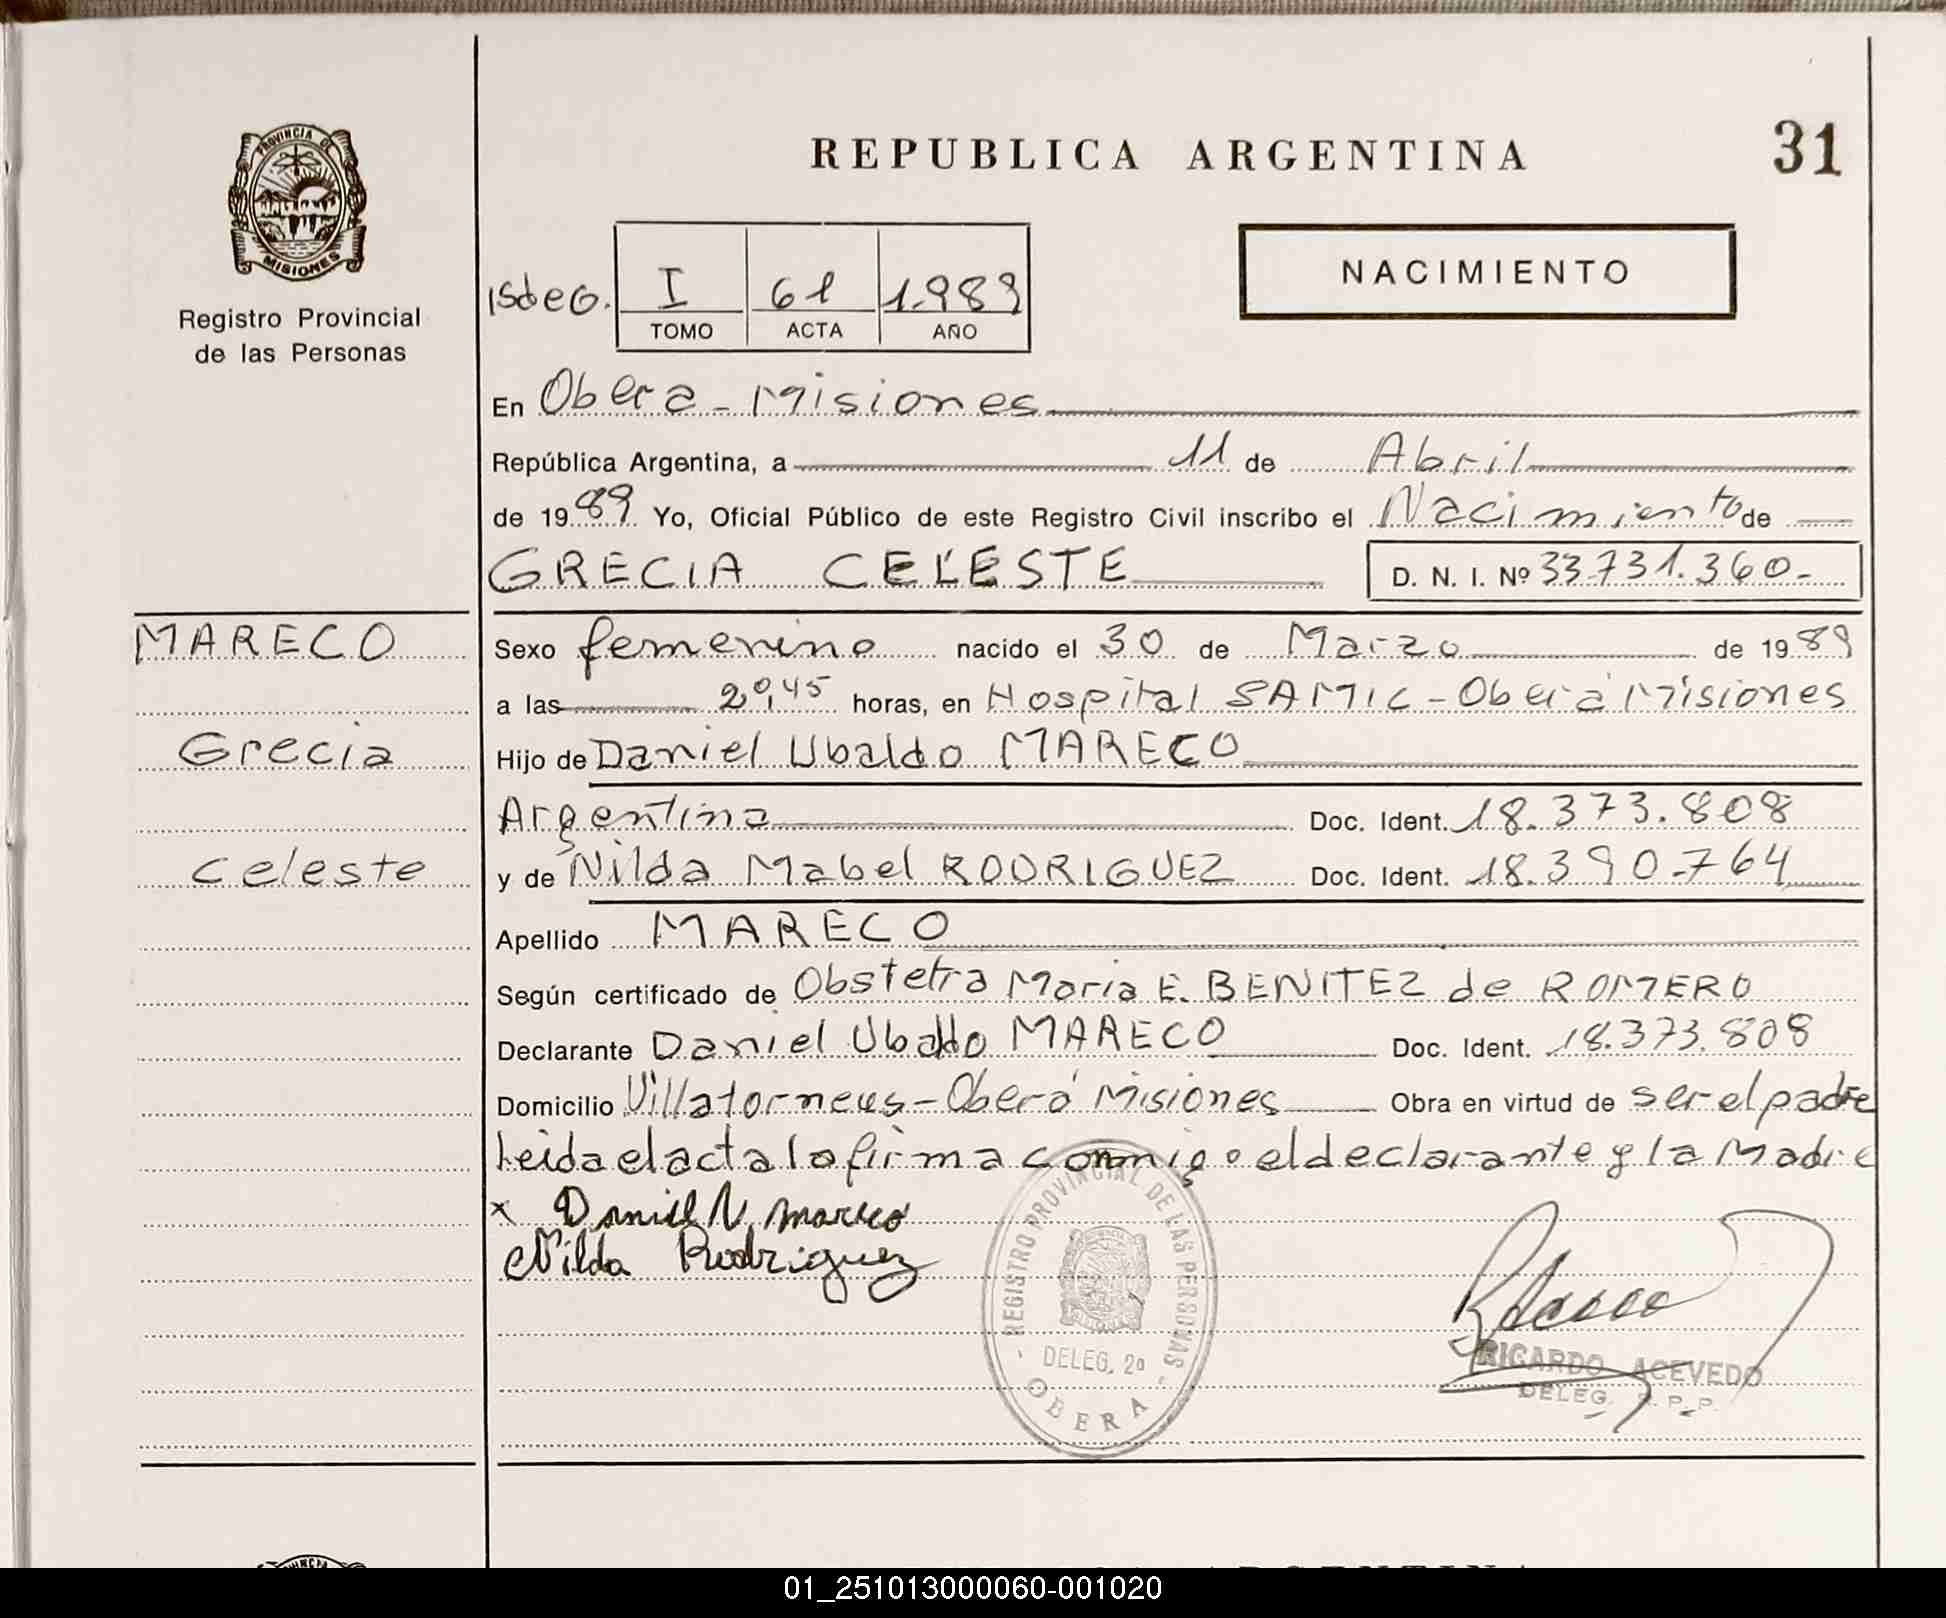 PROVINCIA DE
MISIONES
Registro Provincial
de las Personas
REPUBLICA ARGENTINA
31
NACIMIENTO
I 61 1.989
TOMO ACTA AÑO
En Obera - Misiones
República Argentina, a 11 de Abril
de 1989 Yo, Oficial Público de este Registro Civil inscribo el Nacimiento de
GRECIA CELESTE D. N. I. Nº 33.731.360-
MARECO
Grecia
Celeste
Sexo femenino nacido el 30 de Marzo de 1989
a las 20,45 horas, en Hospital SAMIC - Oberá Misiones
Hijo de Daniel Ubaldo MARECO
Argentina Doc. Ident. 18.373.808
y de Nilda Mabel RODRIGUEZ Doc. Ident. 18.390.764
Apellido MARECO
Según certificado de Obstetra Maria E. BENITEZ de ROMERO
Declarante Daniel Ubaldo MARECO Doc. Ident. 18.373.808
Domicilio Oberá Misiones Obra en virtud de ser el padre
Leida el acta lo firma conmigo el declarante y la Madre
x Daniel U. Mareco
Nilda Rodriguez
- REGISTRO PROVINCIAL DE LAS PERSONAS -
DELEG. 2a
OBERA
RICARDO ACEVEDO
DELEG. R. P. P.
01_251013000060-001020